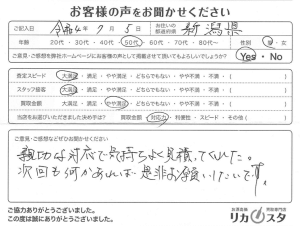 お客様の声をお聞かせください
ご記入日 令和4年7月5日 お住いの都道府県 新潟県
年齢 20代・30代・40代・50代・60代・70代・80代〜 性別 男・女
ご意見・ご感想を弊社ホームページにお客様の声として掲載させて頂いてもよろしいでしょうか? Yes・No
査定スピード 大満足・満足・やや満足・どちらでもない・やや不満・不満
スタッフ接客 大満足・満足・やや満足・どちらでもない・やや不満・不満
買取金額 大満足・満足・やや満足・どちらでもない・やや不満・不満
当店をお選びいただきました決め手は? 買取金額・対応力・利便性・スピード・その他( )
ご意見・ご感想などぜひお聞かせください
親切な対応で気持ちよく見積ってくれた。
次回も何かあれば是非お願いしたいです。
ご協力ありがとうございました。
この度は誠にありがとうございました。
お酒買取専門店
リカスタ